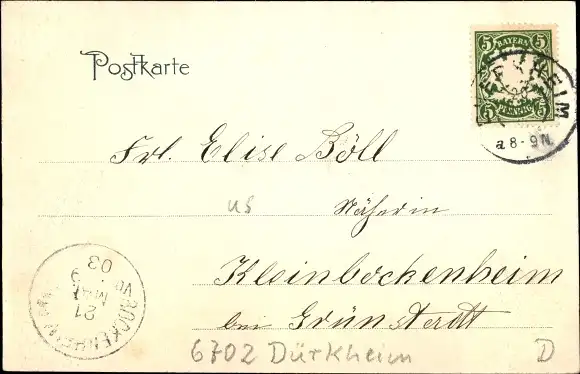 Postkarte
5 BAYERN 5
5 PFENNIG 5
HEIM
a 8-9 N.
Frl. Elise Böll
us
Näherin
Kleinbockenheim
bei Grünstadt
BOCKENHEIM
21
MAI
9
03
6702 Dürkheim
D